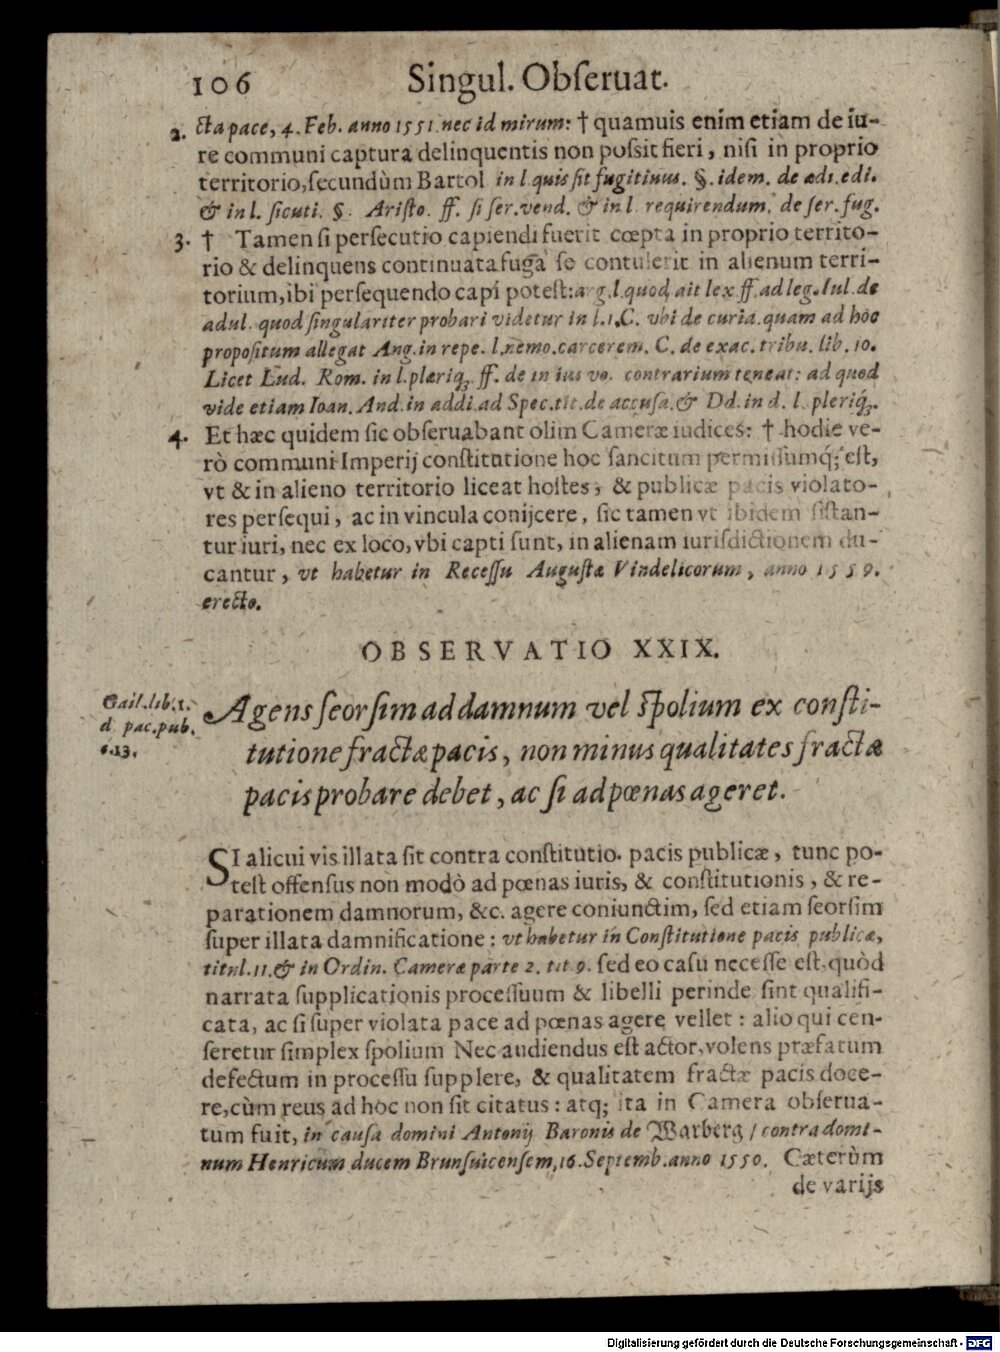 106 Singul. Obſeruat.
2. cta pace, 4. Feb. anno 1551 nec id mirum: † quamuis enim etiam de iu-
re communi captura delinquentis non poſsit fieri, niſi in proprio
territorio, ſecundùm Bartol in l quis ſit fugitiuus. §. idem. de ædi. edi.
& in l. ſicuti. §. Ariſto. ff. ſi ſer. vend. & in l requirendum. de ſer. fug.
3. † Tamen ſi perſecutio capiendi fuerit cœpta in proprio territo-
rio & delinquens continuata fuga ſe contulerit in alienum terri-
torium, ibi perſequendo capi poteſt: arg. l. quod ait lex ff. ad leg. Iul. de
adul. quod ſingulariter probari videtur in l. 1. C. vbi de curia. quam ad hoc
propoſitum allegat Ang. in repe. l. nemo. carcerem. C. de exac. tribu. lib. 10.
Licet Lud. Rom. in l. pleriq; ff. de in ius vo. contrarium teneat: ad quod
vide etiam Ioan. And. in addi. ad Spec. tit. de accuſa. & Dd. in d. l. pleriq́;.
4. Et hæc quidem ſic obſeruabant olim Cameræ iudices: † hodie ve-
rò communi Imperij conſtitutione hoc ſancitum permiſſumq́; eſt,
vt & in alieno territorio liceat hoſtes, & publicæ pacis violato-
res perſequi, ac in vincula conijcere, ſic tamen vt ibidem ſiſtan-
tur iuri, nec ex loco, vbi capti ſunt, in alienam iurisdictionem du-
cantur, vt habetur in Receſſu Auguſtæ Vindelicorum, anno 1559.
erecto.
OBSERVATIO XXIX.
Gail. lib. 1.
d pac. pub.
c. 13.
Agens ſeorſim ad damnum vel ſpolium ex conſti-
tutione fractæ pacis, non minus qualitates fractæ
pacis probare debet, ac ſi ad pœnas ageret.
SI alicui vis illata ſit contra conſtitutio. pacis publicæ, tunc po-
teſt offenſus non modò ad pœnas iuris, & conſtitutionis, & re-
parationem damnorum, &c. agere coniunctim, ſed etiam ſeorſim
ſuper illata damnificatione: vt habetur in Conſtitutione pacis publicæ,
titul. 11. & in Ordin. Cameræ parte 2. tit 9. ſed eo caſu neceſſe eſt, quòd
narrata ſupplicationis proceſſuum & libelli perinde ſint qualifi-
cata, ac ſi ſuper violata pace ad pœnas agere vellet: alio qui cen-
ſeretur ſimplex ſpolium Nec audiendus eſt actor, volens præfatum
defectum in proceſſu ſupplere, & qualitatem fractæ pacis doce-
re, cùm reus ad hoc non ſit citatus: atq; ita in Camera obſerua-
tum fuit, in cauſa domini Antonij Baronis de Warberg / contra domi-
num Henricum ducem Brunſuicenſem, 16. Septemb. anno 1550. Cæterùm
de varijs
Digitalisierung gefördert durch die Deutsche Forschungsgemeinschaft - DFG